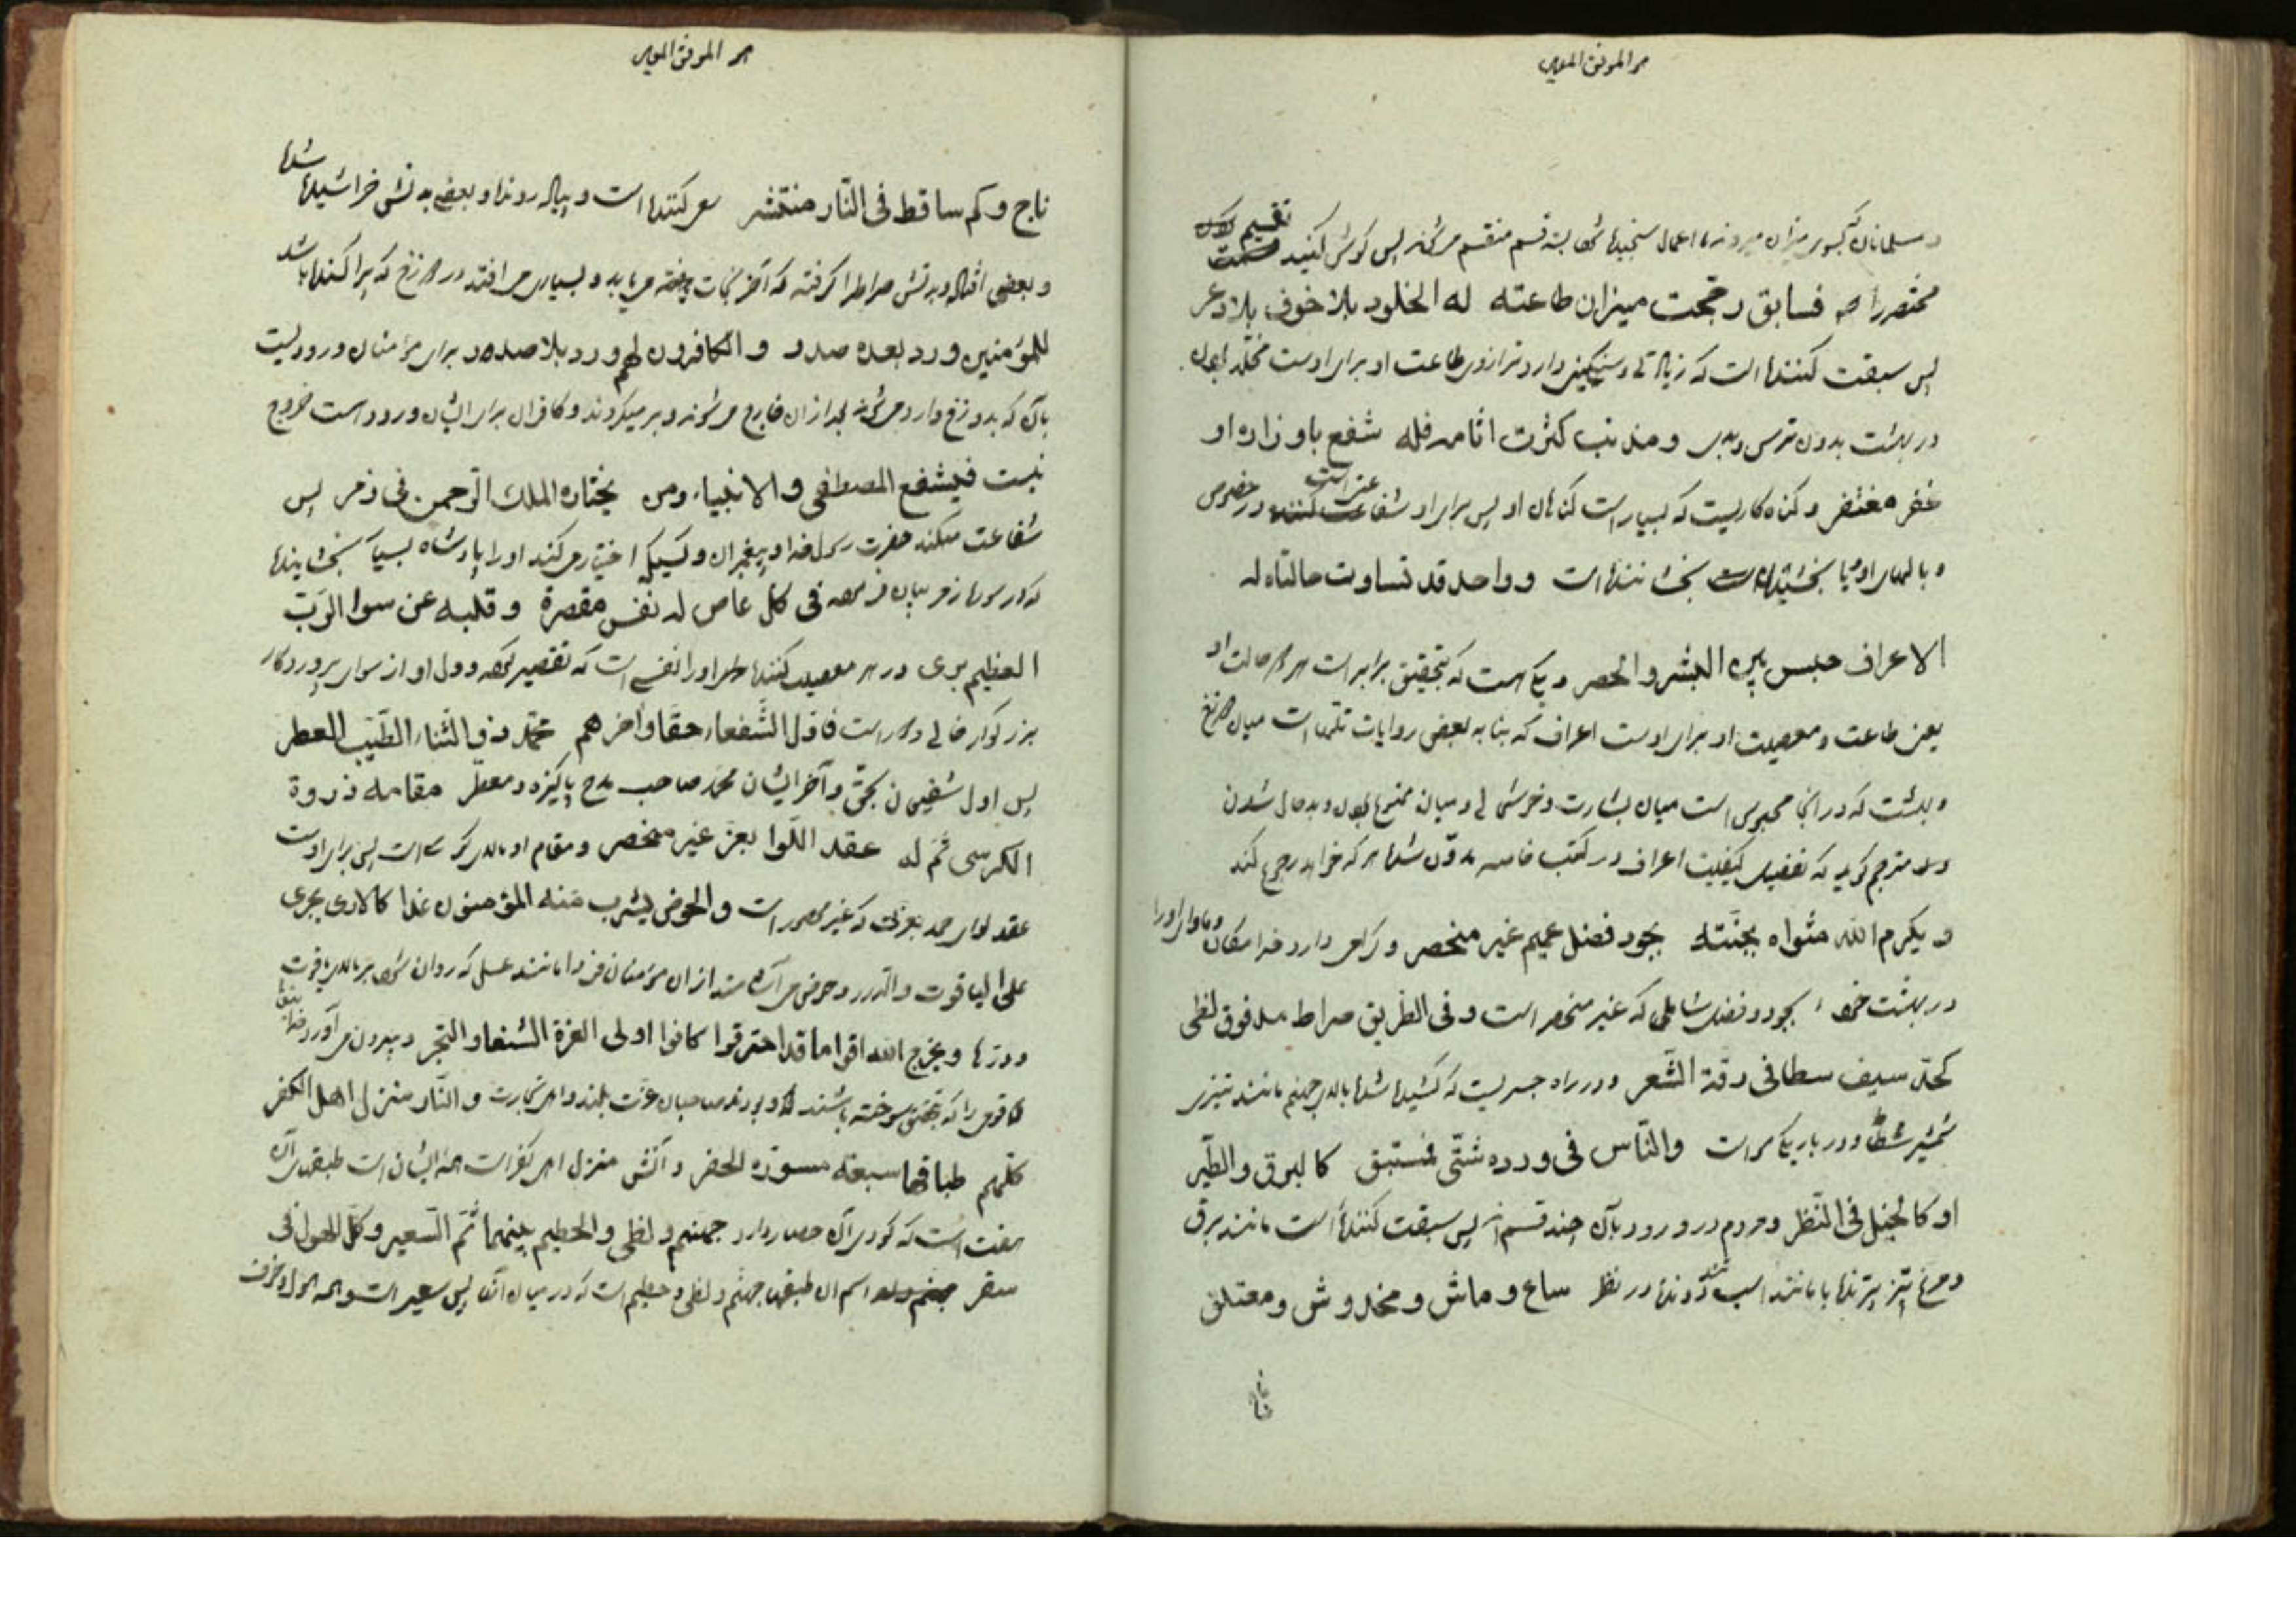 هو الموفق المعین
و مسلمانان که بسوی میزان میروند اعمال سنجیده شده بسه قسم منقسم میشوند پس گوش کنید تقسیم
مختصر را فسابق رجحت میزان طاعته له الخلود بلا خوف بلا ذعر
پس سبقت کننده است که زیادتی و سنگینی دارد ترازوی طاعت او برای اوست مخلد بودن
در بهشت بدون ترس و بیم و مذنب کثرت اثامه فله شفع باوزاره او
غفر مغتفر و گناه کاریست که بسیار است گناهان او پس برای او شفاعت است در خصوص
و بالهای او یا بخشیدن بخشاننده است و واحد قد تساوت حالتاه له
الاعراف حبس بین البشر والحصر و یکی است که بتحقیق برابر است هر دو حالت او
یعنی طاعت و معصیت او برای اوست اعراف که بنا به بعضی روایات تلی است میان دوزخ
و بهشت که در آنجا محبوس است میان بشارت و خوشحالی و میان ممنوع بودن و بدحال شدن
مترجم گوید که تفصیل کیفیت اعراف در کتب خاصه مدون شده هر که خواهد رجوع کند
و یکرم الله مثواه بجنته بجود فضل عمیم غیر منحصر و گرامی دارد خدا مکان و ماوای او را
در بهشت خود بجود و فضل شاملی که غیر منحصر است و فی الطریق صراط مد فوق لظی
کحد سیف سطا فی دقة الشعر و در راه جسریست که کشیده شده بالای جهنم مانند تیزی
شمشیر و در باریکی مو است والناس فی ورده شتی فمستبق کالبرق والطیر
او کالخیل فی النظر و مردم در ورود بآن چند قسم‌اند پس سبقت کننده است مانند برق
و مرغ تیز پرنده یا مانند اسب تند دونده در نظر ساع و ماش و مخدوش و معتلق
ناج
هو الموفق المعین
ناج و کم ساقط فی النار منتشر سعی کننده است و پیاده رونده و بعضی بدنش خراشیده شده
و بعضی افتاده و بدنش صراط را گرفته که آخر نجات می‌یابد و بسیاری می‌افتد در دوزخ که پراکنده باشد
للمؤمنین ورد بعده صدر و الکافرون لهم ورد بلا صدر برای مؤمنان ورودیست
بآن که بدوزخ وارد میشوند بعد از آن خارج میشوند و برمیگردند و کافران برای ایشان ورود است خروج
نیست فیشفع المصطفی و الانبیاء ومن یختاره الملك الرحمن فی زمر پس
شفاعت میکند حضرت رسول خدا و پیغمبران و کسیکه اختیار میکند او را پادشاه بسیار بخشاینده
فی کل عاص له نفس مقصرة و قلبه عن سوا الرب
العظیم بری در هر معصیت کننده او را نفسی است که تقصیر کرده و دل او از سوای پروردگار
بزرگوار خالی است فاول الشفعاء حقا وآخرهم محمد ذو الثناء الطیب العطر
پس اول شفیعان بحق و آخر ایشان محمد صاحب مدح پاکیزه و معطر مقامه ذروة
الکرسی ثم له عقد اللوا بعز غیر منحصر و مقام او بالای کرسی است پس برای اوست
عقد لوای حمد بعزت که غیر محصور است والحوض یشرب منه المؤمنون غدا کالاری یجری
علی الیاقوت والدرر و حوضی می‌آشامند از آن مؤمنان فردا مانند عسلی که روان شود بر بالای یاقوت
و درها و یخرج الله اقواما قد احترقوا کانوا اولی العزة الشنعا و التجر و بیرون می‌آورد خدا
قومی را که بتحقیق سوخته باشند و بودند صاحبان عزت بلند و اهل تجارت و النار منزل اهل الکفر
کلهم طباقها سبعة مسودة الحفر و آتش منزل اهل کفر است همه ایشان است طبقهای آن
هفت است که گودی آن حصار دارد جهنم و لظی والحطیم بینهما ثم السعیر و کل الهول فی
سقر اسم آن طبقها جهنم و لظی و حطیم است که در میان آنها پس سعیر است و همه هول و خوف